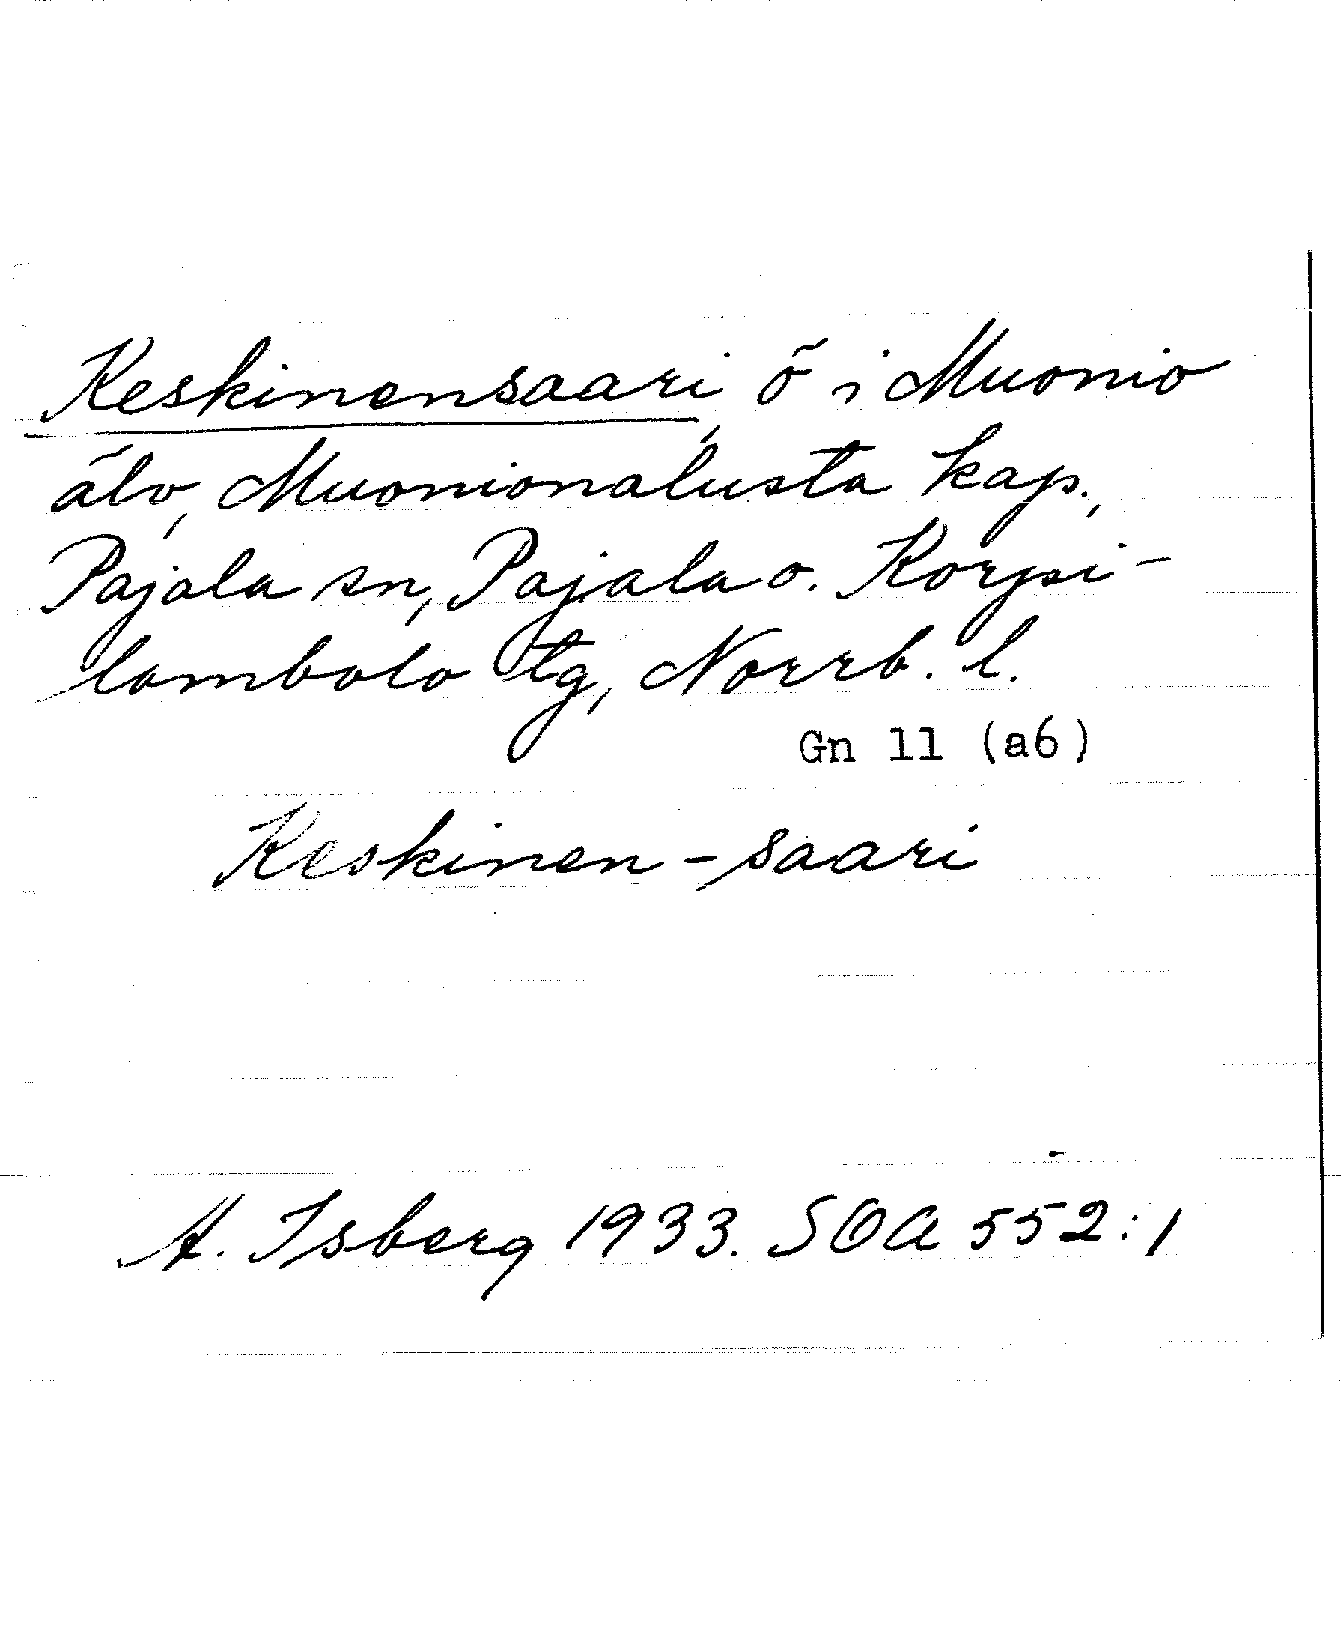 Keskinensaari, ö i Muonio
älv, Muonionalusta kap.,
Pajala sn, Pajala o. Korpi-
lombolo tg, Norrb. l.
Gn 11 (a6)
Keskinen-saari
A. Isberg 1933. SOA 552:1